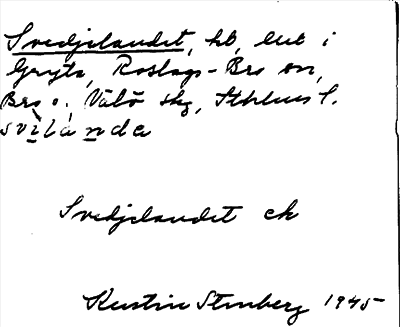 Svedjelandet, hb, ent i
Gryta, Roslags-Bro sn,
Bro o. Vätö skg, Sthlms l.
svilanda
Svedjelandet ek
Kerstin Stenberg 1945